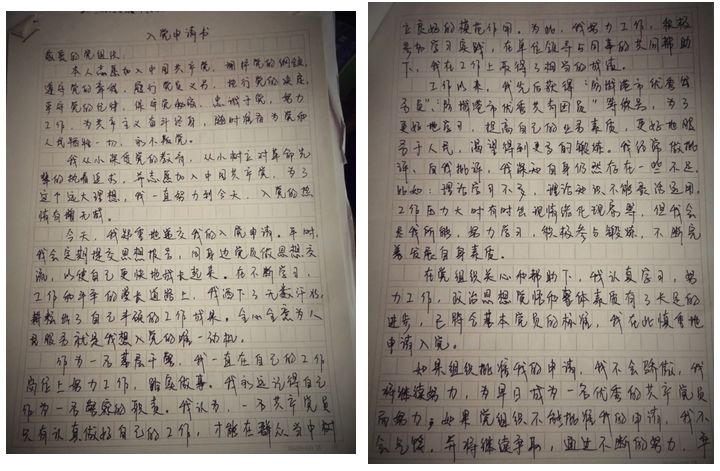 入党申请书
敬爱的党组织:
本人志愿加入中国共产党,拥护党的纲领,
遵守党的章程,履行党员义务,执行党的决定,
严守党的纪律,保守党秘密,忠诚于党,努力
工作,为共产主义奋斗终身,随时准备为党和
人民牺牲一切,永不叛党。
我从小深受党的教育,从小树立对革命先
辈的执着追求,并志愿加入中国共产党,为了
这个远大理想,我一直努力到今天,入党的热
情有增无减。
今天,我郑重地递交我的入党申请。平时,
我会定期提交思想报告,同身边党员做思想交
流,以使自己更快地成长起来。在不断学习、
工作和平平的漫长道路上,我洒下了无数汗水,
耕耘出了自己平凡的工作成果。全心全意为人
民服务就是我想入党的唯一动机。
作为一名基层干警,我一直在自己的工作
岗位上努力工作,踏实做事。我永远记得自己
作为一名警察的职责。我认为,一名共产党员
只有认真做好自己的工作,才能在群众当中树
立良好的模范作用。为此,我努力工作,积极
参加学习实践,在单位领导与同事的共同帮助
下,我在工作上取得了相当的成绩。
工作以来,我先后获得"防城港市优秀我
党员"、"防城港市优秀共青团员"等荣号,为了
更好地学习,提高自己的业务素质,更好地服
务于人民,渴望得到更多的锻炼。我仍需做批
评、自我批评,我深知自身仍然存在一些不足,
比如:理论学习不多,理论知识不能灵活运用。
工作压力大时有时出现情绪化现象等,但我会
尽我所能,努力学习,积极参与锻炼,不断完
善发展自身素质。
在党组织关心和帮助下,我认真学习,努
力工作,政治思想觉悟和整体素质有了长足的
进步,已符合基本党员的标准,我在此慎重地
申请入党。
如果组织批准我的申请,我不会骄傲,我
将继续努力,为早日成为一名优秀的共产党员
而努力;如果党组织不能批准我的申请,我不
会气馁,并将继续争取,通过不断的努力,争